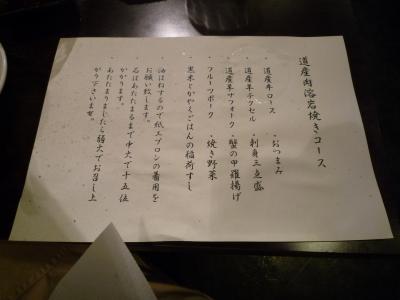 道産肉溶岩焼きコース
・道産牛ロース ・おつまみ
・道産羊テクセル ・刺身三点盛
・道産羊サフォーク ・蟹の甲羅揚げ
・フルーツポーク ・焼き野菜
・黒米とかやくごはんの稲荷すし
油はねするので紙エプロンの着用を
お願い致します。
石はあたたまるまで中火で十五位
かかります。
あたたまりましたら弱火でお召し上
がり下さいませ。